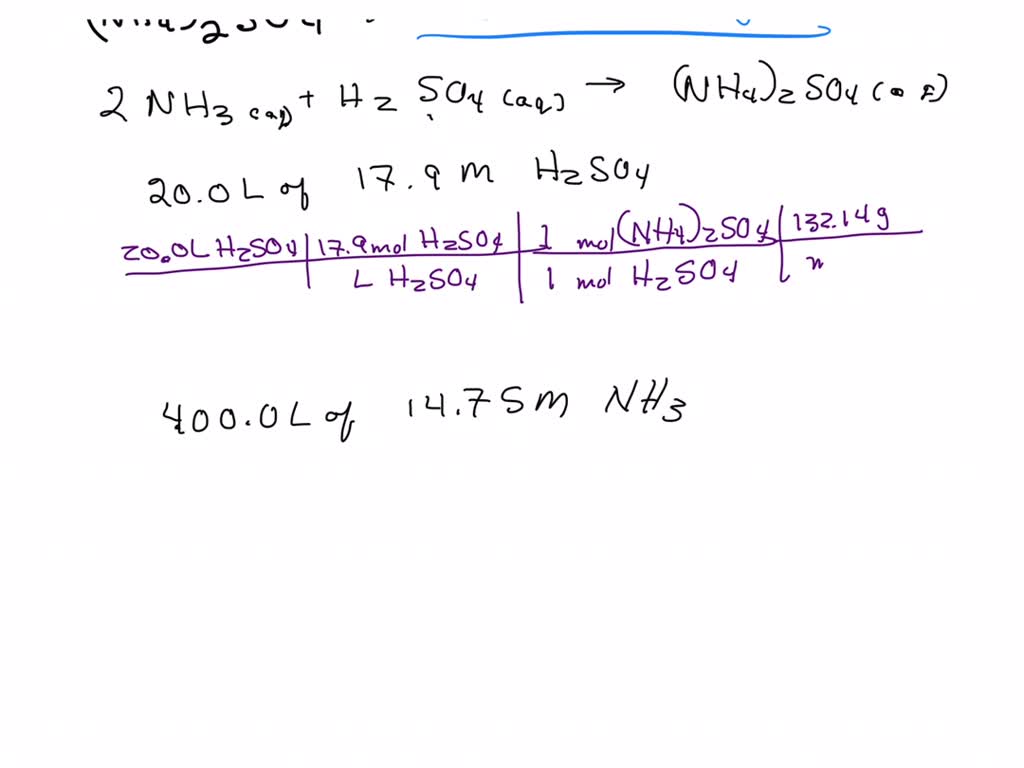 2 NH3 (aq) + H2 SO4 (aq) → (NH4)2 SO4
20.0 L of 17.9 m H2SO4
20.0L H2SO4 | 17.9 mol H2SO4 | 1 mol (NH4)2SO4 | 132.14 g
L H2SO4 | 1 mol H2SO4 | m
400.0 L of 14.75 m NH3